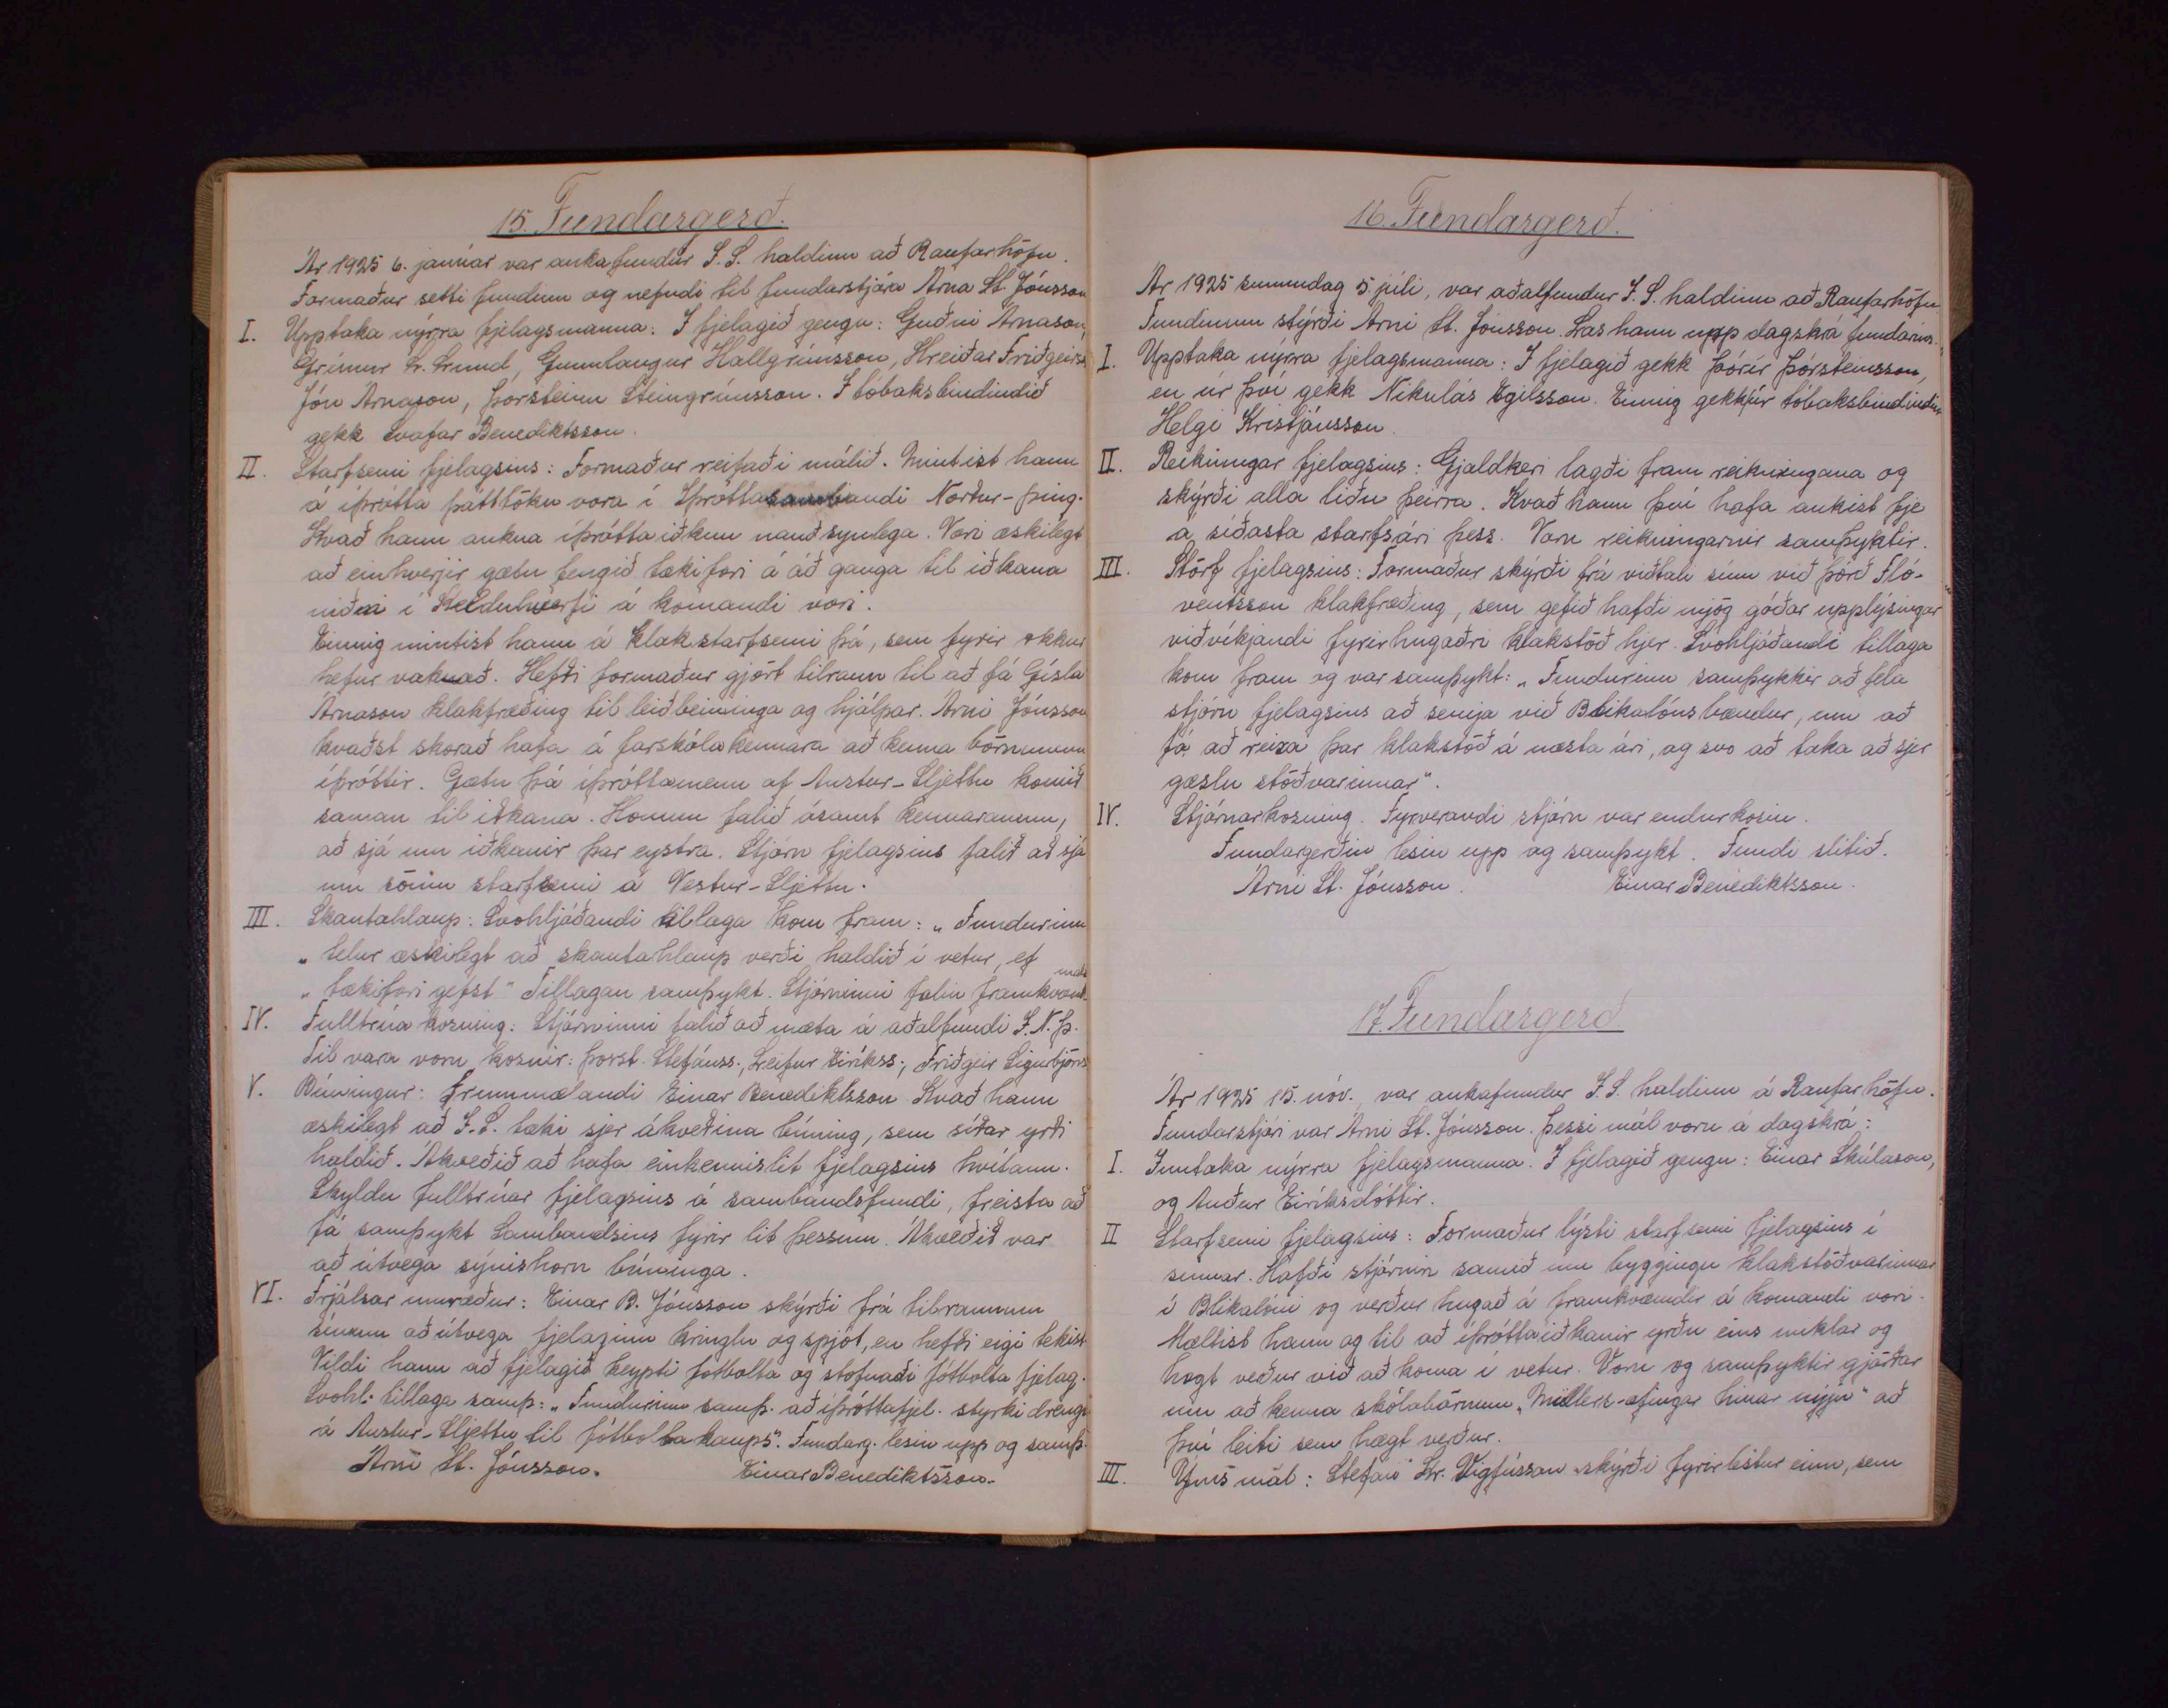 15. Fundargerð.
Ár 1925 6. janúar var aukafundur Í.S. haldinn að Raufarhöfn.
Formaður setti fundinn og nefndi til fundarstjóra Árna St. Jónsson
I. Upptaka nýrra fjelagsmanna: Í fjelagið gengu: Guðni Árnason,
Grímur Lr. Lund, Gunnlaugur Hallgrímsson, Hreiðar Friðgeirss.
Jón Árnason, Þorsteinn Steingrímsson. Í tóbaksbindindið
gekk Svafar Benediktsson.
II. Starfsemi fjelagsins: Formaður reifaði málið. Mintist hann
á íþrótta þátttöku vora í Íþróttasambandi Norður-Þing.
Kvað hann aukna íþróttaiðkun nauðsynlega. Væri æskilegt
að einhverjir gætu fengið tækifæri á að ganga til iðkana
niðri í Kelduhverfi á komandi vori.
Einnig mintist hann á klakstarfsemi þá, sem fyrir okkur
hefur vaknað. Hefði formaður gjört tilraun til að fá Gísla
Árnason klakfræðing til leiðbeininga og hjálpar. Árni Jónsson
kvaðst skorað hafa á farskólakennara að kenna börnunum
íþróttir. Gætu þá íþróttamenn af Austur-Sljettu komið
saman til iðkana. Honum falið ásamt kennaranum,
að sjá um iðkanir þar eystra. Stjórn fjelagsins falið að sjá
um sömu starfsemi á Vestur-Sljettu.
III. Skautahlaup: Svohljóðandi tillaga kom fram: „Fundurinn
„telur æskilegt að skautahlaup verði haldið í vetur, ef
„tækifæri gefst“ Tillagan samþykt. Stjórninni falin framkvæmd
IV. Fulltrúa kosning: Stjórninni falið að mæta á aðalfundi Í.N.Þ.
Til vara voru kosnir: Þorst. Stefánss., Leifur Eiríkss., Friðgeir Sigurbjörns
V. Búningur: Frummælandi Einar Benediktsson. Kvað hann
æskilegt að Í.S. tæki sjer ákveðinn búning, sem síðar yrði
haldið. Ákveðið að hafa einkennislit fjelagsins hvítann.
Skyldu fulltrúar fjelagsins á sambandsfundi, freista að
fá samþykt Sambandsins fyrir lit þessum. Ákveðið var
að útvega sýnishorn búninga.
VI. Frjálsar umræður: Einar B. Jónsson skýrði frá tilraunum
sínum að útvega fjelaginu kringlu og spjót, en hefði eigi tekist
Vildi hann að fjelagið keypti fótbolta og stofnaði fótbolta fjelag.
Svohl. tillaga samþ: „Fundurinn samþ. að íþróttafjel. styrki drengi
á Austur-Sljettu til fótboltakaups“. Fundarg. lesin upp og samþ.
Árni St. Jónsson. Einar Benediktsson.
16. Fundargerð.
Ár 1925 sunnudag 5. júlí, var aðalfundur Í.S. haldinn að Raufarhöfn
Fundinum stýrði Árni St. Jónsson. Las hann upp dagskrá fundarins.
I. Upptaka nýrra fjelagsmanna: Í fjelagið gekk Þórir Þórsteinsson,
en úr því gekk Nikulás Egilsson. Einnig gekk úr tóbaksbindindinu
Helgi Kristjánsson.
II. Reikningar fjelagsins: Gjaldkeri lagði fram reikningana og
skýrði alla liðu þeirra. Kvað hann því hafa aukist fje
á síðasta starfsári þess. Voru reikningarnir samþyktir.
III. Störf fjelagsins: Formaður skýrði frá viðtali sínu við Þórð Fló-
ventsson klakfræðing, sem gefið hafði mjög góðar upplýsingar
viðvíkjandi fyrirhugaðri klakstöð hjer. Svohljóðandi tillaga
kom fram og var samþykt: „Fundurinn samþykkir að fela
stjórn fjelagsins að semja við Blikalónsbændur, um að
fá að reisa þar klakstöð á næsta ári, og svo að taka að sjer
gæslu stöðvarinnar“.
IV. Stjórnarkosning. Fyrverandi stjórn var endurkosin.
Fundargerðin lesin upp og samþykt. Fundi slitið.
Árni St. Jónsson. Einar Benediktsson.
17. Fundargerð
Ár 1925 15. nóv. var aukafundur Í.S. haldinn á Raufarhöfn.
Fundarstjóri var Árni St. Jónsson. Þessi mál voru á dagskrá:
I. Inntaka nýrra fjelagsmanna. Í fjelagið gengu: Einar Skúlason,
og Auður Eiríksdóttir.
II Starfsemi fjelagsins: Formaður lýsti starfsemi fjelagsins í
sumar. Hafði stjórnin samið um byggingu klakstöðvarinnar
í Blikalóni og verður hugað á framkvæmdir á komandi vori.
Mæltist hann og til að íþróttaiðkanir yrðu eins miklar og
hægt verður við að koma í vetur. Voru og samþyktir gjörðar
um að kenna skólabörnum „Müllers-æfingar hinar nýju“ að
því leiti sem hægt verður.
III. Ýmis mál: Stefán Kr. Vigfússon skýrði fyrirlestur einn, sem